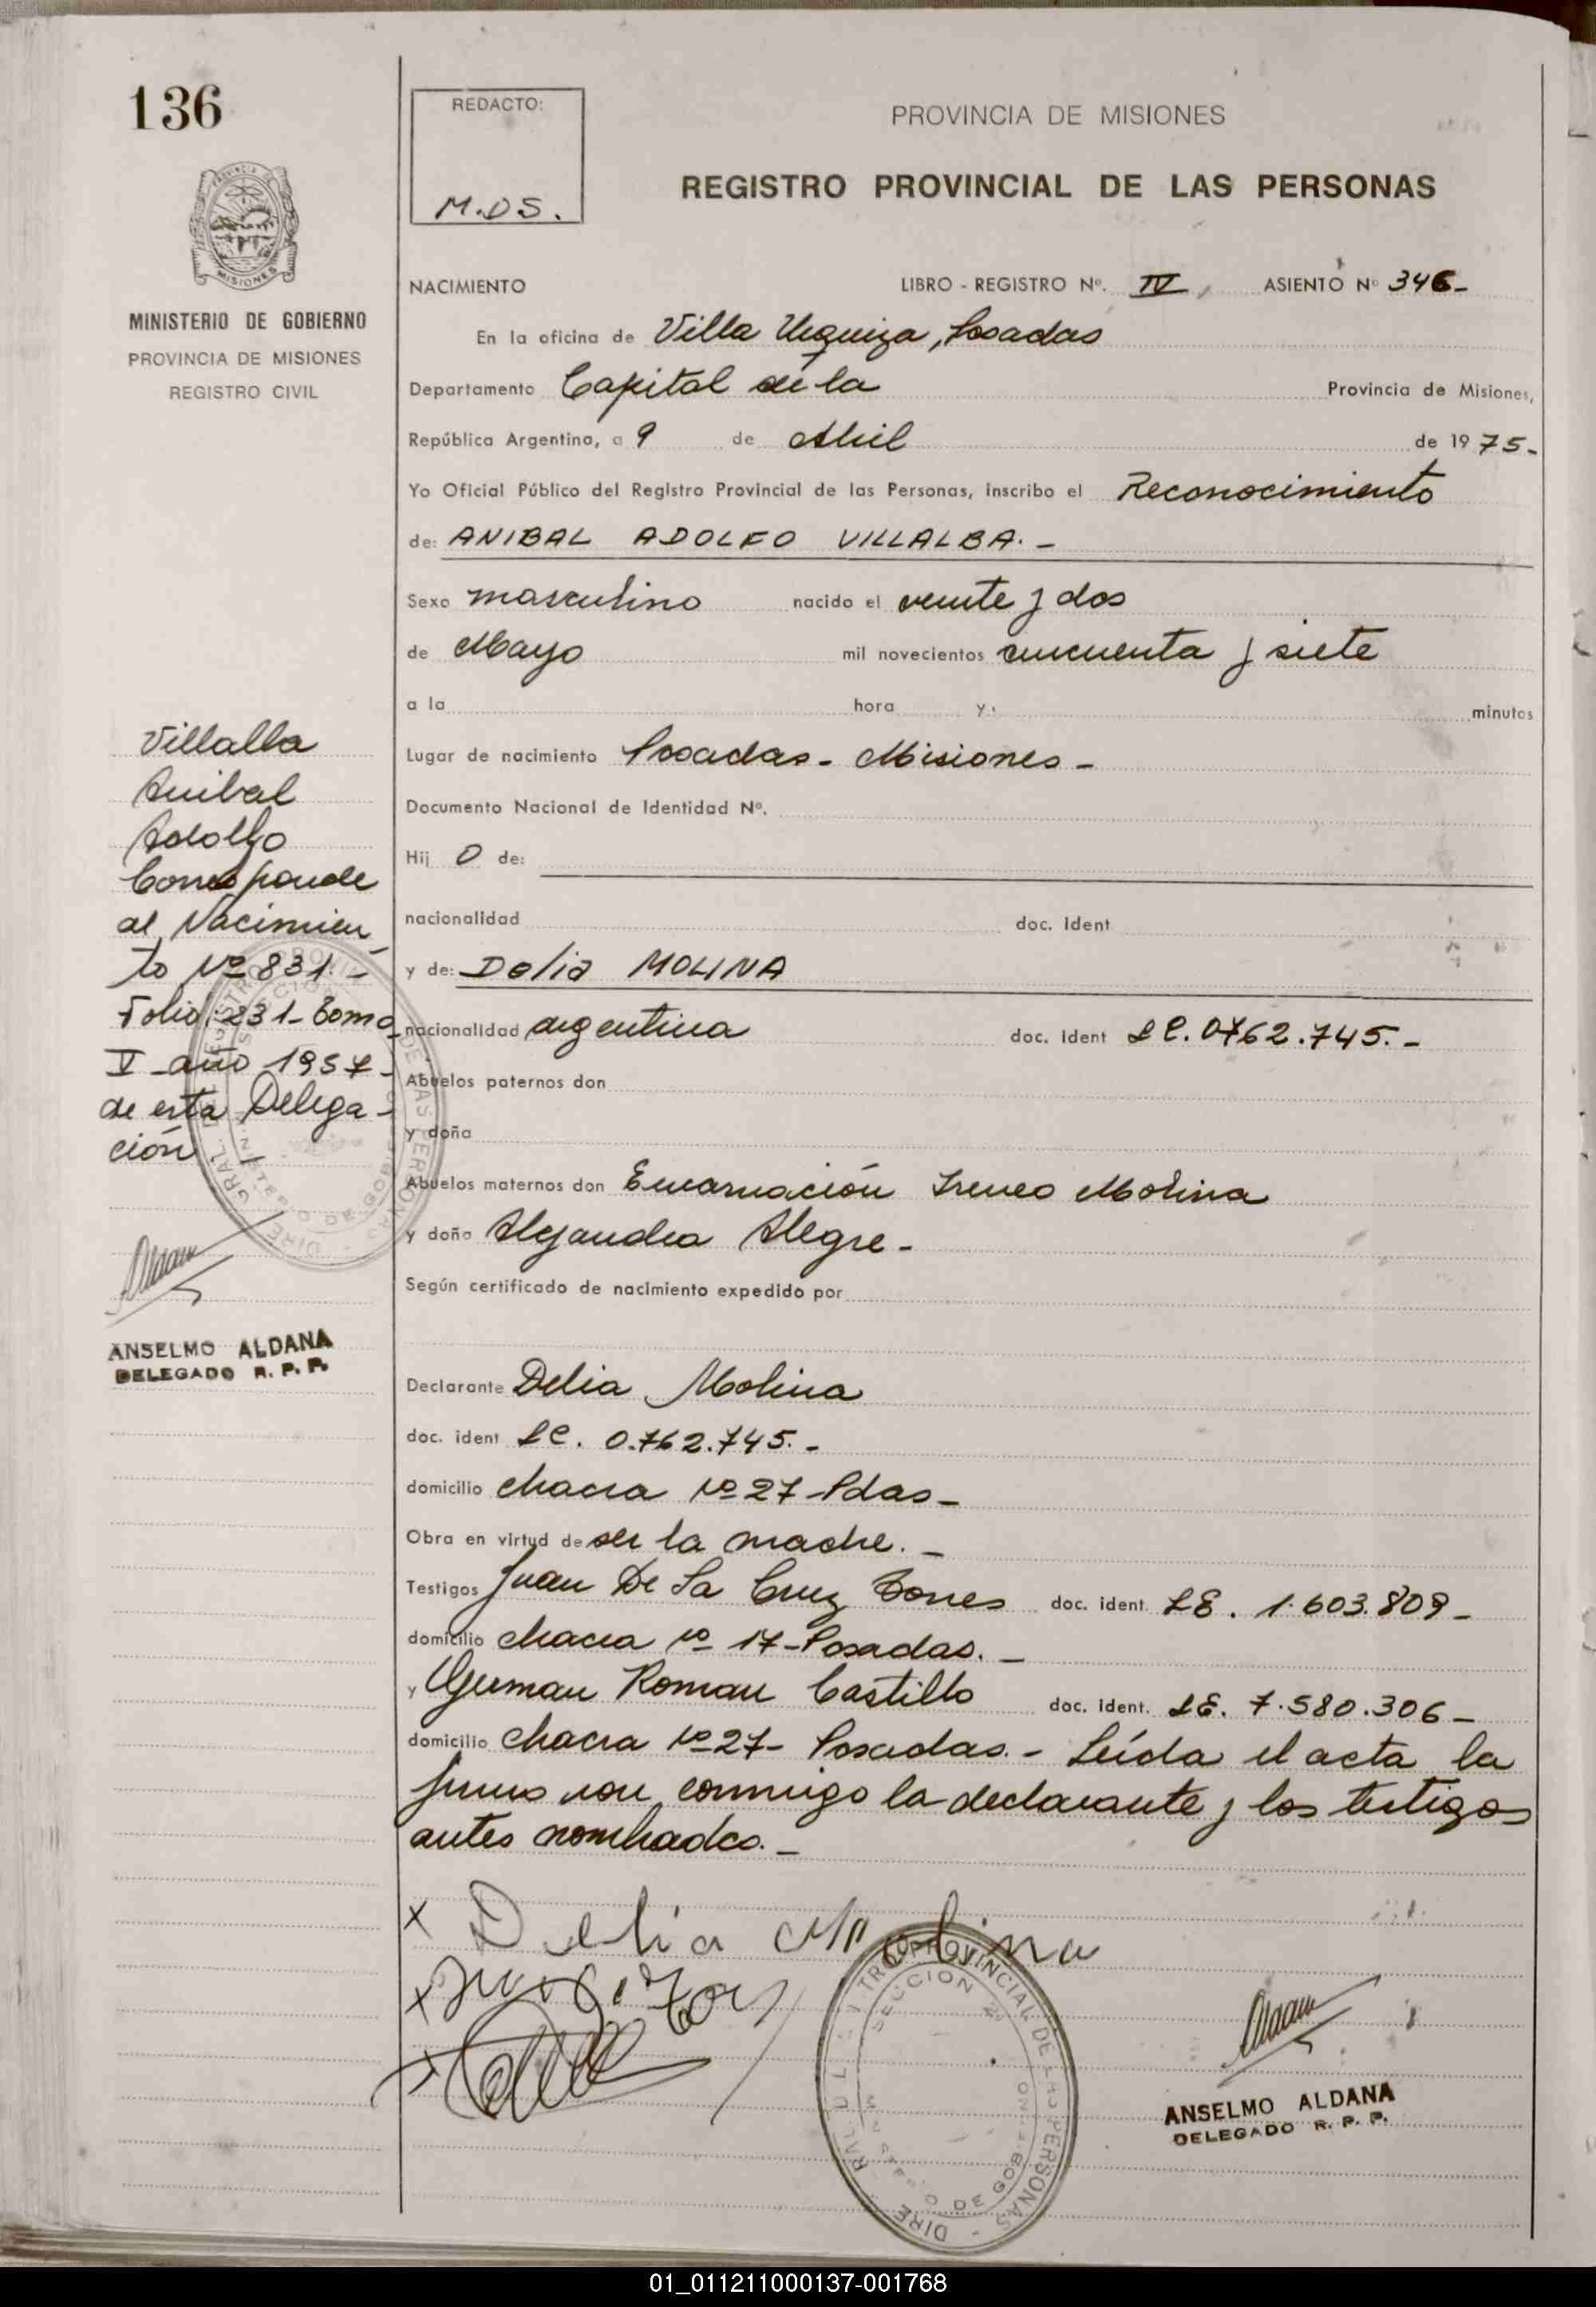 136
REDACTO:
M.DS.
PROVINCIA DE MISIONES
REGISTRO PROVINCIAL DE LAS PERSONAS
MISIONES
MINISTERIO DE GOBIERNO
PROVINCIA DE MISIONES
REGISTRO CIVIL
NACIMIENTO LIBRO - REGISTRO Nº. IV, ASIENTO Nº 346-
En la oficina de Villa Urquiza, Posadas
Departamento Capital de la Provincia de Misiones,
República Argentina, a 9 de Abril de 1975-
Yo Oficial Público del Registro Provincial de las Personas, inscribo el Reconocimiento
de: ANIBAL ADOLFO VILLALBA.-
Sexo masculino nacido el veinte y dos
de Mayo mil novecientos cincuenta y siete
a la hora y minutos
Lugar de nacimiento Posadas - Misiones -
Documento Nacional de Identidad Nº.
Hij o de:
nacionalidad doc. ident
y de: Delia MOLINA
nacionalidad argentina doc. ident LC. 0762.745.-
Abuelos paternos don
y doña
Abuelos maternos don Encarnación Ireneo Molina
y doña Alejandra Alegre -
Según certificado de nacimiento expedido por
Declarante Delia Molina
doc. ident LC. 0.762.745.-
domicilio chacra Nº 27 - Pdas -
Obra en virtud de ser la madre. -
Testigos Juan De La Cruz Torres doc. ident LE. 1.603.809 -
domicilio chacra Nº 17 - Posadas. -
y German Roman Castillo doc. ident. LE. 7.580.306 -
domicilio chacra Nº 27 - Posadas. - Leída el acta la
conmigo la declarante y los testigos
antes nombrados. -
Villalba
Anibal
Adolfo
Corresponde
al Nacimien
to Nº 831.-
Folio 231 - Tomo
V - año 1957 -
de esta Delega -
ción -
ANSELMO ALDANA
DELEGADO R. P. P.
x Delia Molina
x
x
SECCION 2ª
PROVINCIAL DE LAS PERSONAS
DE GOBIERNO
ANSELMO ALDANA
DELEGADO R. P. P.
01_011211000137-001768